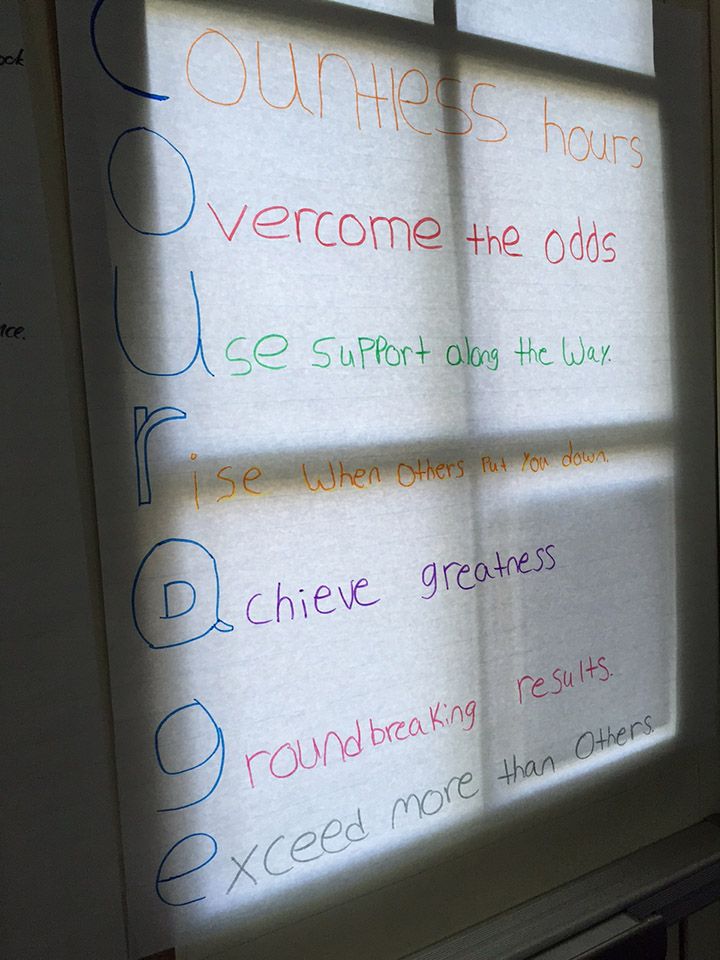 ock
nce.
Countless hours
Overcome the odds
Use support along the way.
rise when others put you down.
achieve greatness
groundbreaking results.
exceed more than others.